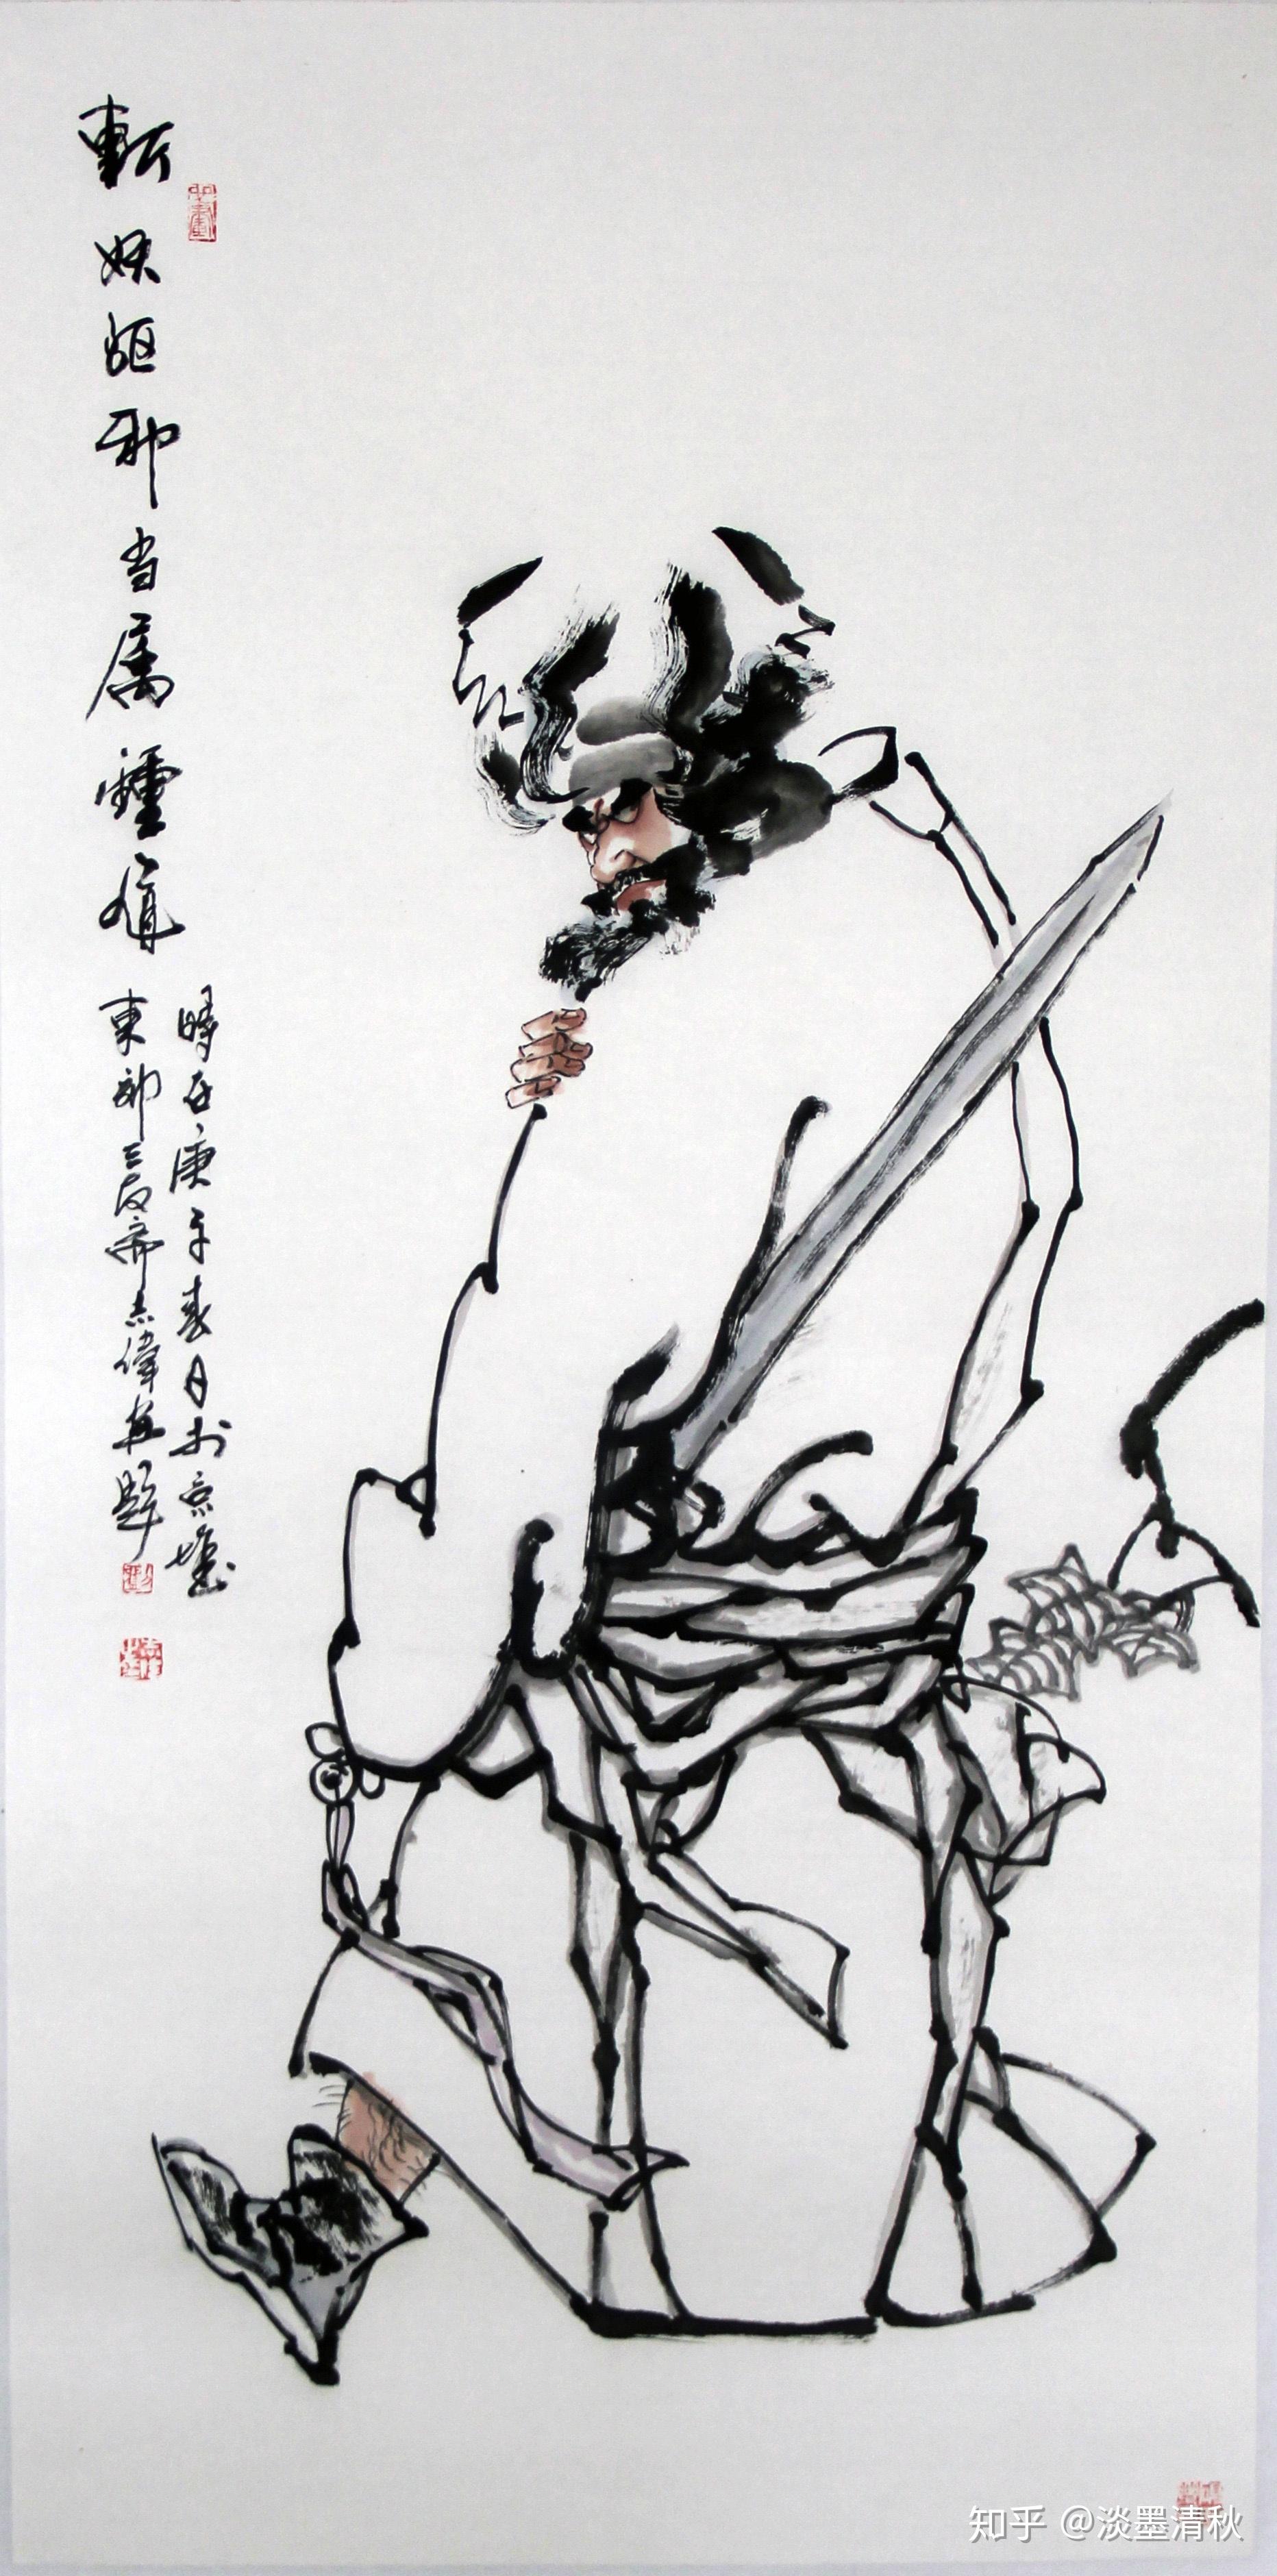 斬妖驱邪当属鍾馗
時在庚子春日於京城
東郊三友齋志偉並題
知乎 @淡墨清秋